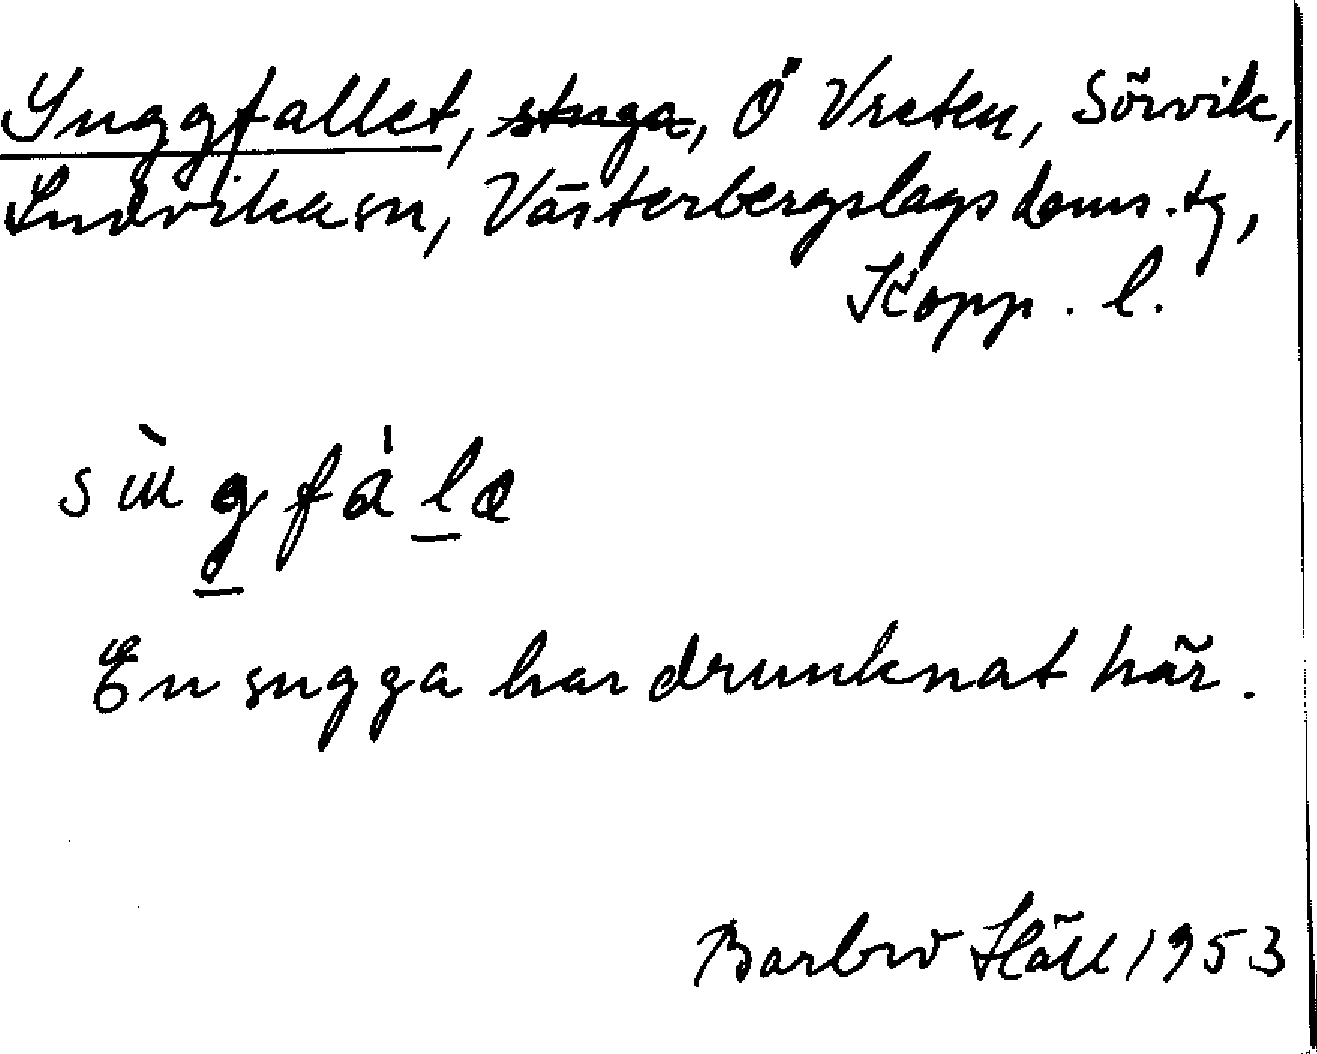 Suggfallet, stuga, Ö Vreten, Sörvik,
Ludvika sn, Västerbergslags doms. tg,
Kopp. l.
En sugga har drunknat här.
Barbro Häll 1953